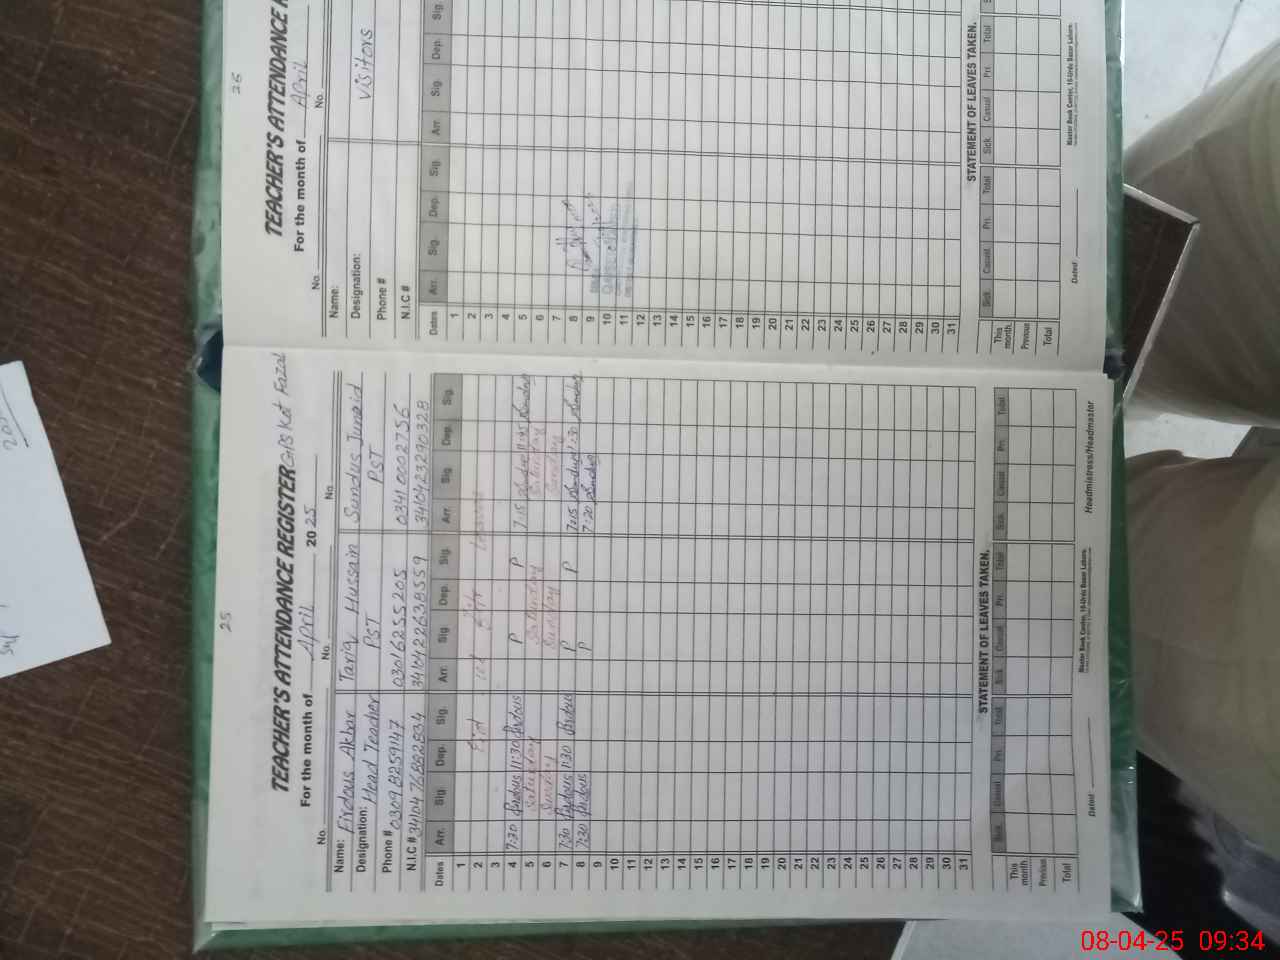 25
TEACHER'S ATTENDANCE REGISTER G
Kot Fazal
For the month of April 2025
No. No. No.
Name: Firdous Akbar Tariq Hussain Sundus Junaid
Designation: Head Teacher PST PST
Phone # 03098259147 03016255205 03410002756
N.I.C # 3410476882834 3410422638559 3410423290328
Dates Arr. Sig. Dep. Sig. Arr. Sig. Dep. Sig. Arr. Sig. Dep. Sig.
1
2 Eid ul Fitr
3
4 7:30 Firdous 11:30 Firdous P P 7:15 Sundus 11:45 Sundus
5 Saturday Saturday Saturday
6 Sunday Sunday Sunday
7 7:30 Firdous 1:30 Firdous P P 7:15 Sundus 1:30 Sundus
8 7:30 Firdous P 7:20 Sundus
9
10
11
12
13
14
15
16
17
18
19
20
21
22
23
24
25
26
27
28
29
30
31
STATEMENT OF LEAVES TAKEN.
Sick Casual Pri. Total Sick Casual Pri. Total Sick Casual Pri. Total
This month.
Previous
Total
Dated Master Book Center, 10-Urdu Bazar Lahore. Headmistress/Headmaster
26
TEACHER'S ATTENDANCE R
For the month of April
No. No.
Name:
Designation: Visitors
Phone #
N.I.C #
Dates Arr. Sig. Dep. Sig. Arr. Sig. Dep. Sig.
1
2
3
4
5
6
7
8
9
10
11
12
13
14
15
16
17
18
19
20
21
22
23
24
25
26
27
28
29
30
31
STATEMENT OF LEAVES TAKEN.
Sick Casual Pri. Total Sick Casual Pri. Total S
This month.
Previous
Total
Dated Master Book Center, 10-Urdu Bazar Lahore.
08-04-25 09:34